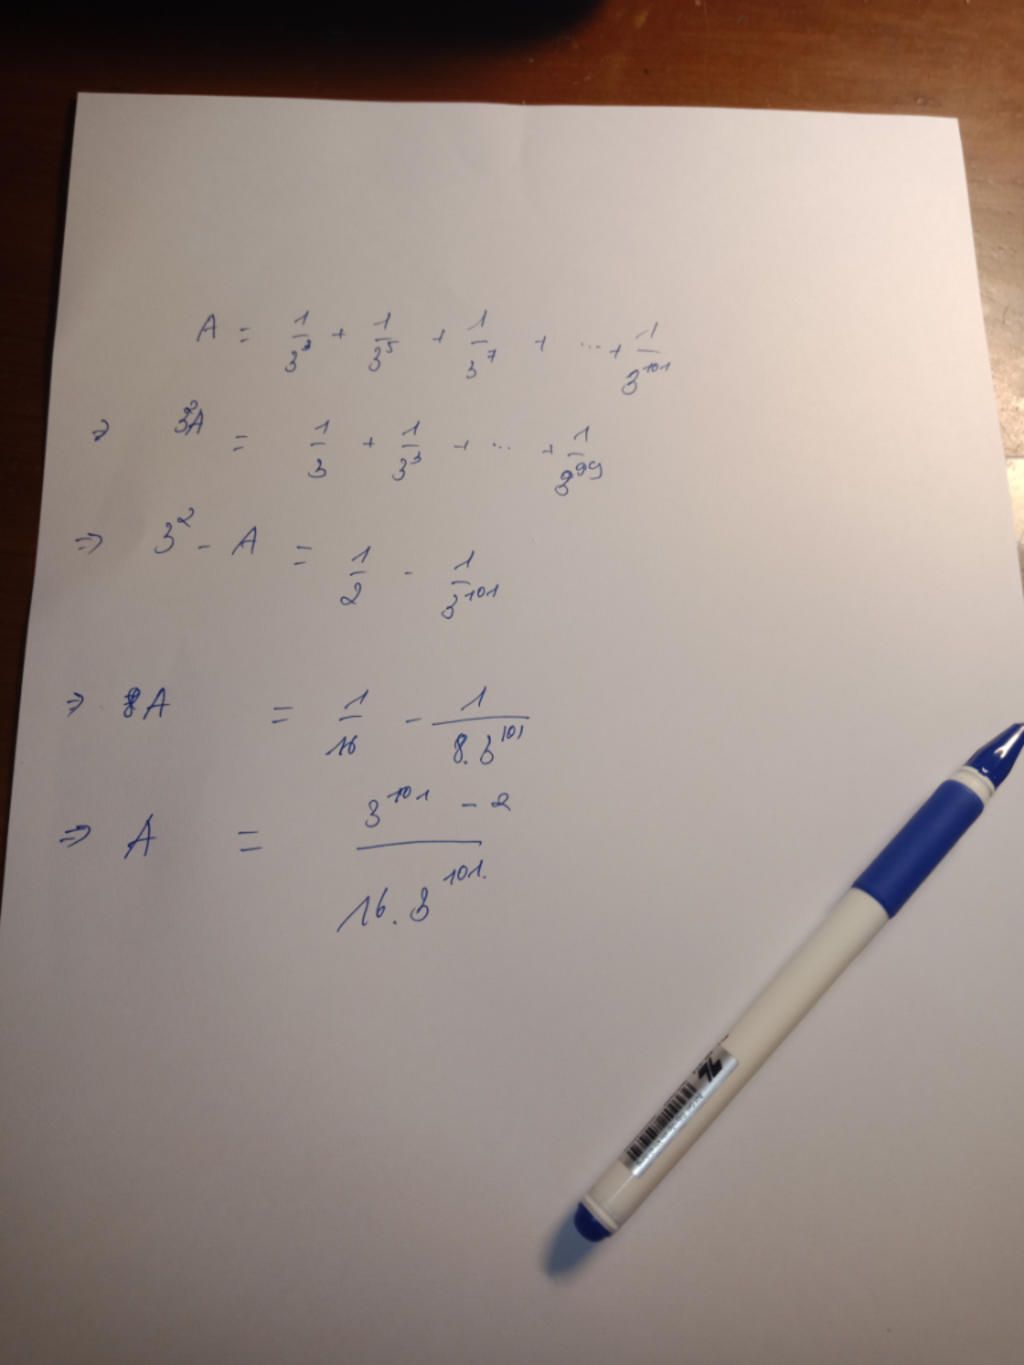 A = 1/3³ + 1/3⁵ + 1/3⁷ + ... + 1/3¹⁰¹
⇒ 3²A = 1/3 + 1/3³ + ... + 1/3⁹⁹
⇒ 3² - A = 1/2 - 1/3¹⁰¹
⇒ 8A = 1/16 - 1/8.3¹⁰¹
⇒ A = 3¹⁰¹ - 2 / 16.3¹⁰¹.